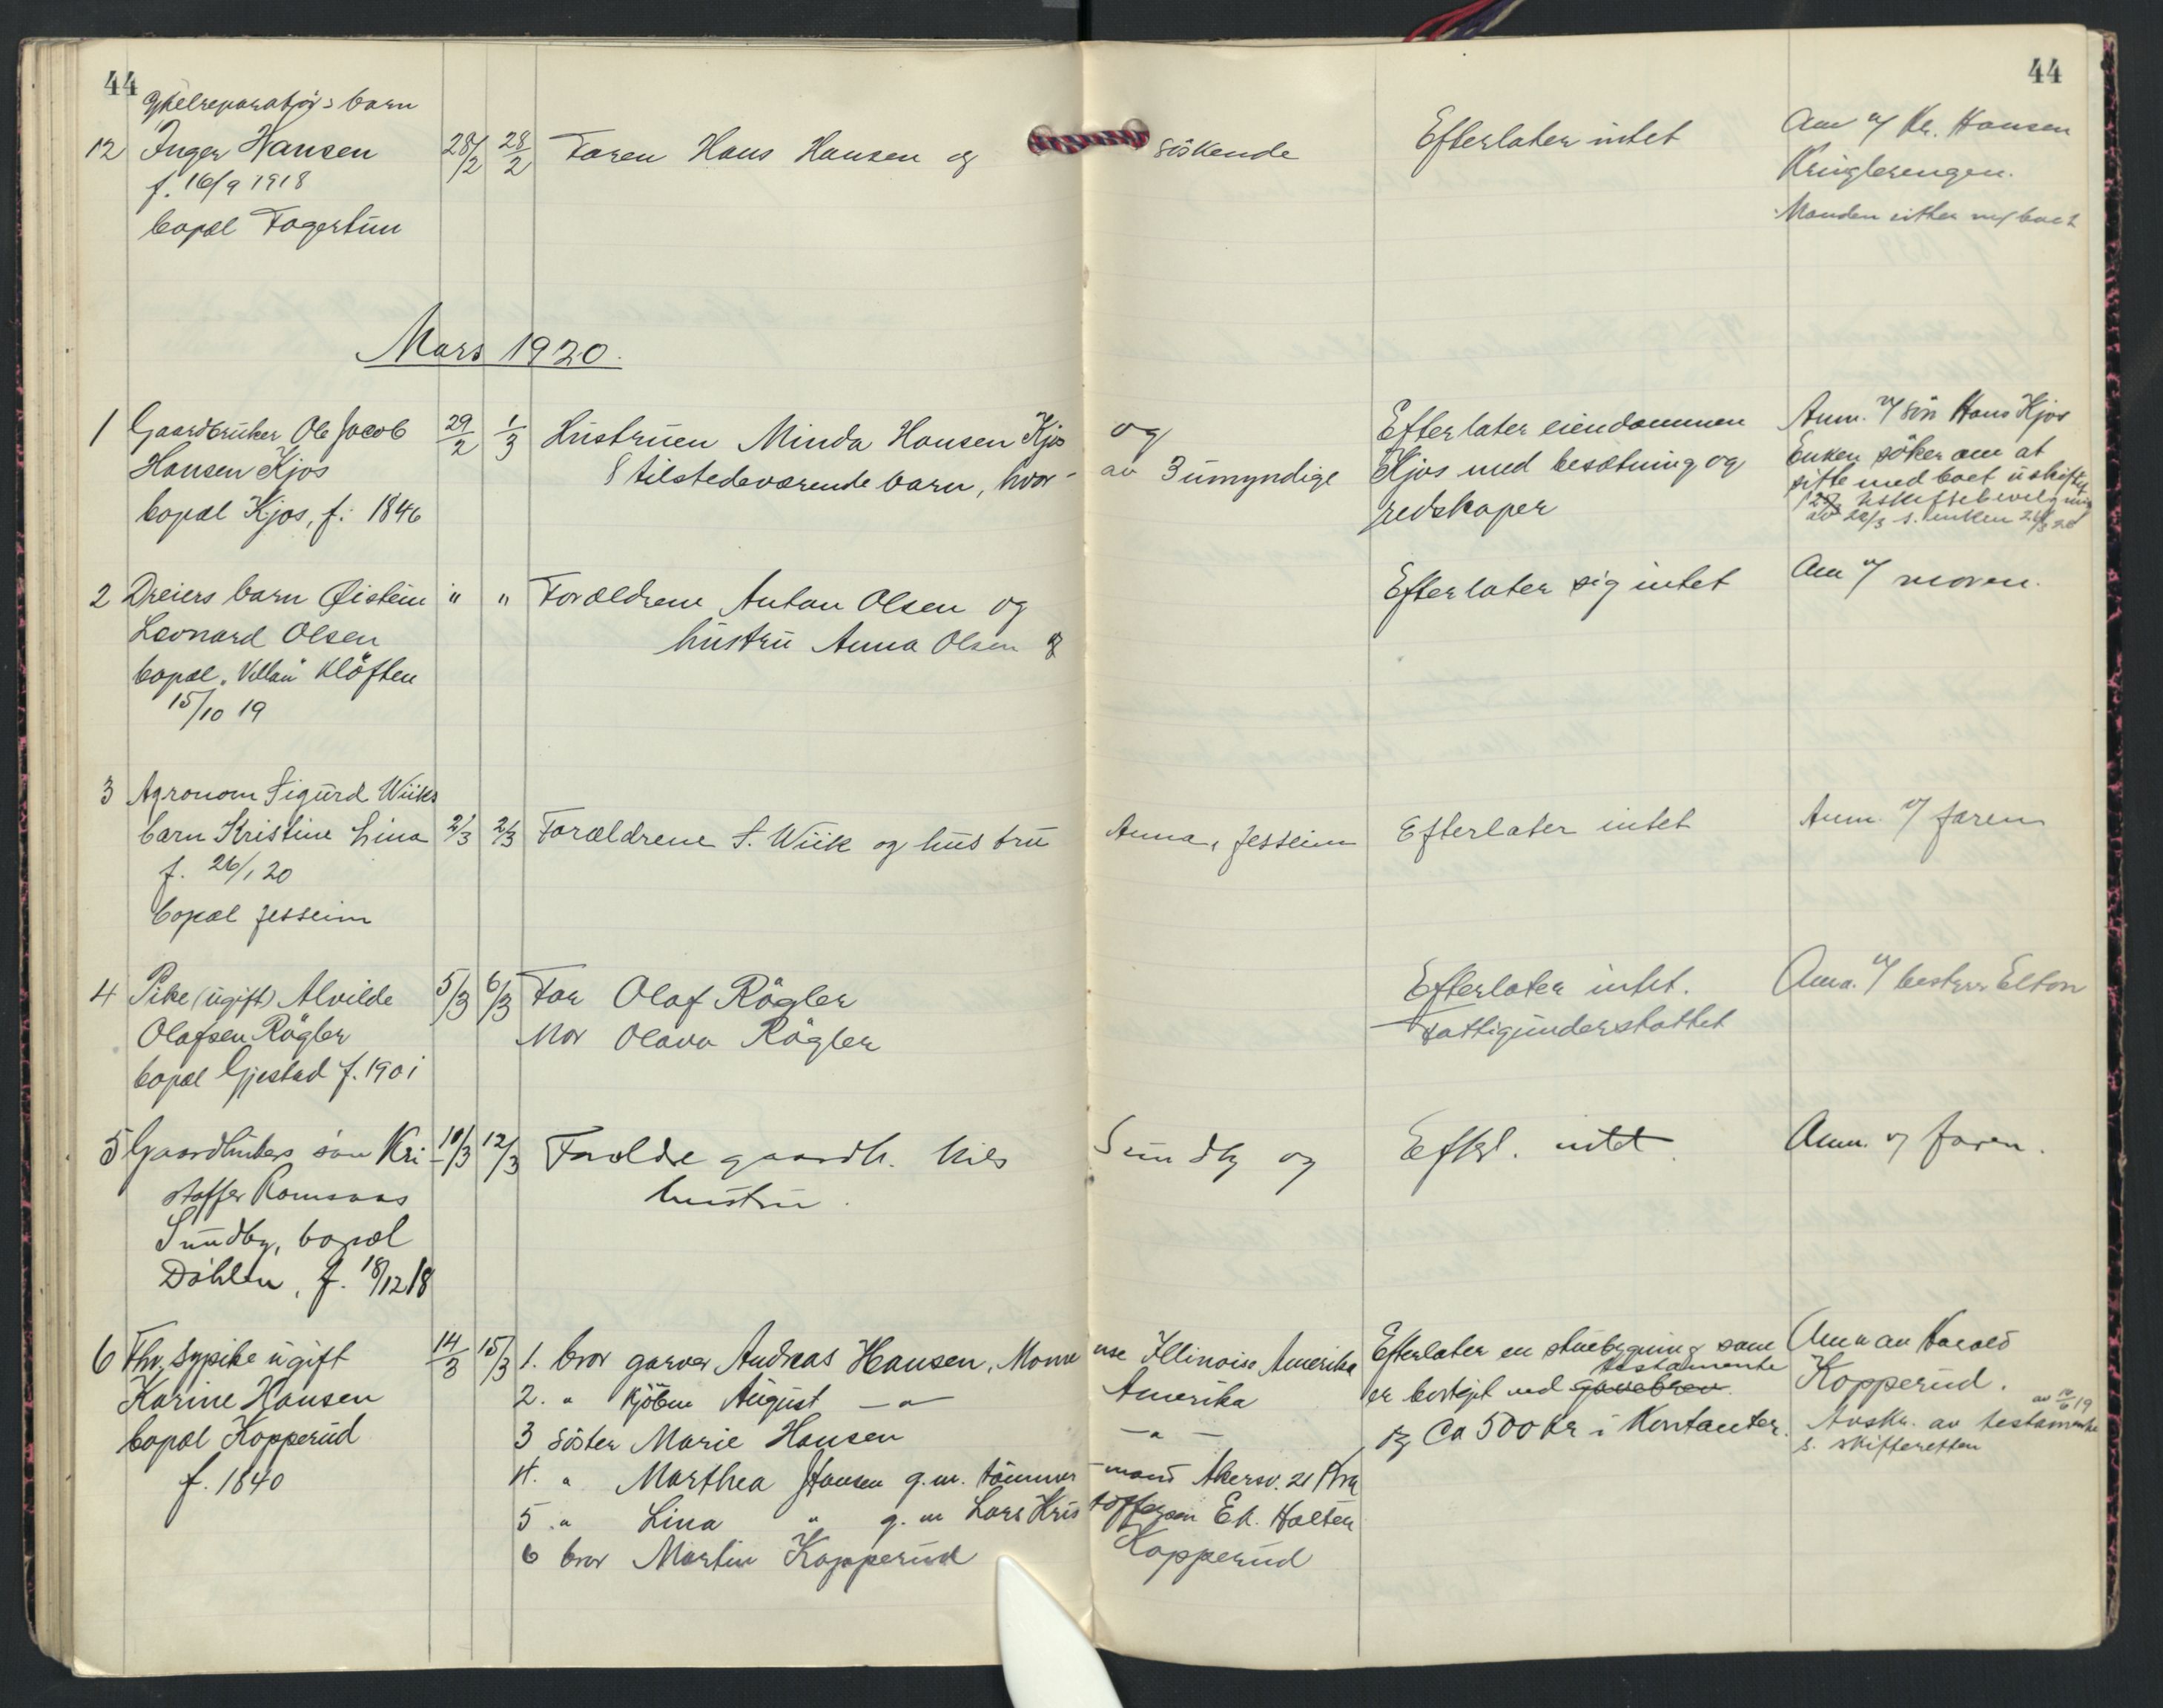 44
44
barn
12 Inger Hansen 28/2 28/2 Faren Hans Hansen og søskende Efterlater intet Anm v/ Kr. Hansen
f. 16/9 1918 Kringlerengen.
bopæl Fagertun Manden sitter
Mars 1920.
1 Gaardbruker Ole Jacob 29/2 1/3 Hustruen Minda Hansen Kjos og Efterlater eiendommen Anm. v/ søn Hans Kjos
Hansen Kjos 8 tilstedeværende barn, hvor- av 3 umyndige Kjos med besætning og Enken søker om at
bopæl Kjos, f. 1846 redskaper sitte med boet uskiftet
2 Dreiers barn Øistein " " Forældrene Anton Olsen og Efterlater sig intet Anm v/ moren.
Leonard Olsen hustru Anna Olsen
bopæl Kløften
15/10 19
3 Agronom Sigurd Wiiks
barn Kristine Lina 2/3 2/3 Forældrene S. Wiik og hustru Anna, Jessheim Efterlater intet Anm. v/ faren
f. 26/1 20
bopæl Jessheim
4 Pike (ugift) Alvilde 5/3 6/3 Far Olaf Rögler Efterlater intet. Anm. v/ Elton
Olafsen Rögler Mor Olava Rögler Fattigunderstøttet
bopæl Gjestad f. 1901
5 Gaardbrukers søn Kri- 10/3 12/3 Forældre gaardb. Nils Sundby og Efterl. intet. Anm. v/ faren.
stoffer Romsaas hustru.
Sundby, bopæl
Döhlen, f. 18/12 18
6 Fhv. sypike ugift 14/3 15/3 1. bror garver Andreas Hansen, Momence Illinoise Amerika Efterlater en stuebygning som Anm av Harald
Karine Hansen 2. " Kjöbm August —"— Amerika er bortgit ved gavebrev testamente Kopperud.
bopæl Kopperud 3 söster Marie Hansen —"— og Ca 500 kr i Kontanter. Avskr. av testamente av 10/6 19
f. 1840 4. " Marthea Hansen g.m. tömmermand Akersv. 21 Kra s. skifteretten
5. " Lina " g.m Lars Kristoffersen Ek. Holter
6 bror Martin Kopperud Kopperud